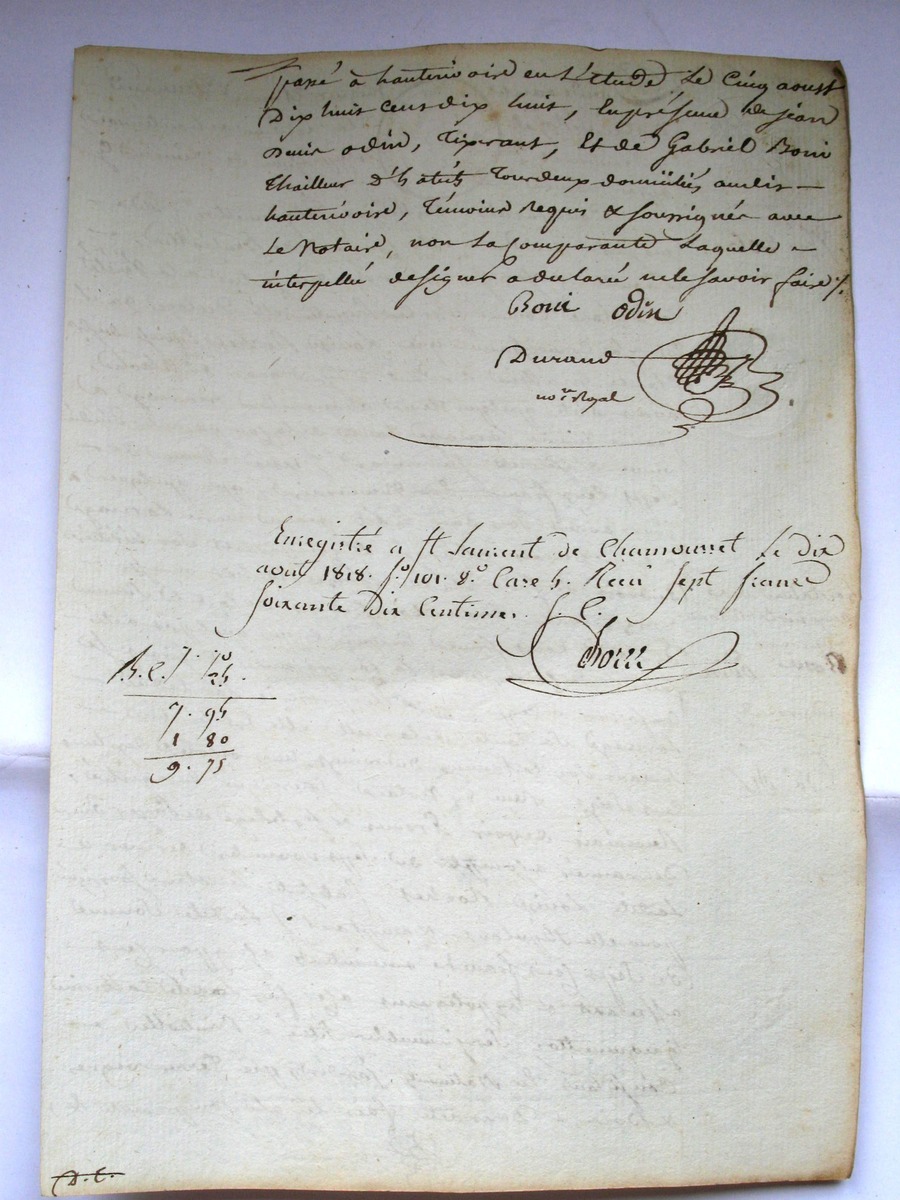 passé à hauterivoire en l'étude Le Cinq aoust
Dix huit Cent dix huit, En présence de jean
Denis odin, Tixerant, Et de Gabriel Boni
Thailleur D'habits Tous deux domiciliés audit
hauterivoire, Témoins Requis & soussignés avec
Le Notaire, non La Comparante Laquelle
interpellé de signer a declaré ne le savoir faire ⁒
Boni Odin
Durand
no.re Royal
Enregistré a St Laurent de Chamousset Le dix
aout 1818. f.o 101. v.o Case 5. Reçu Sept francs
soixante Dix Centimes.
B.C. 7. 70
25.
7. 95
1 80
9. 75
D.C.